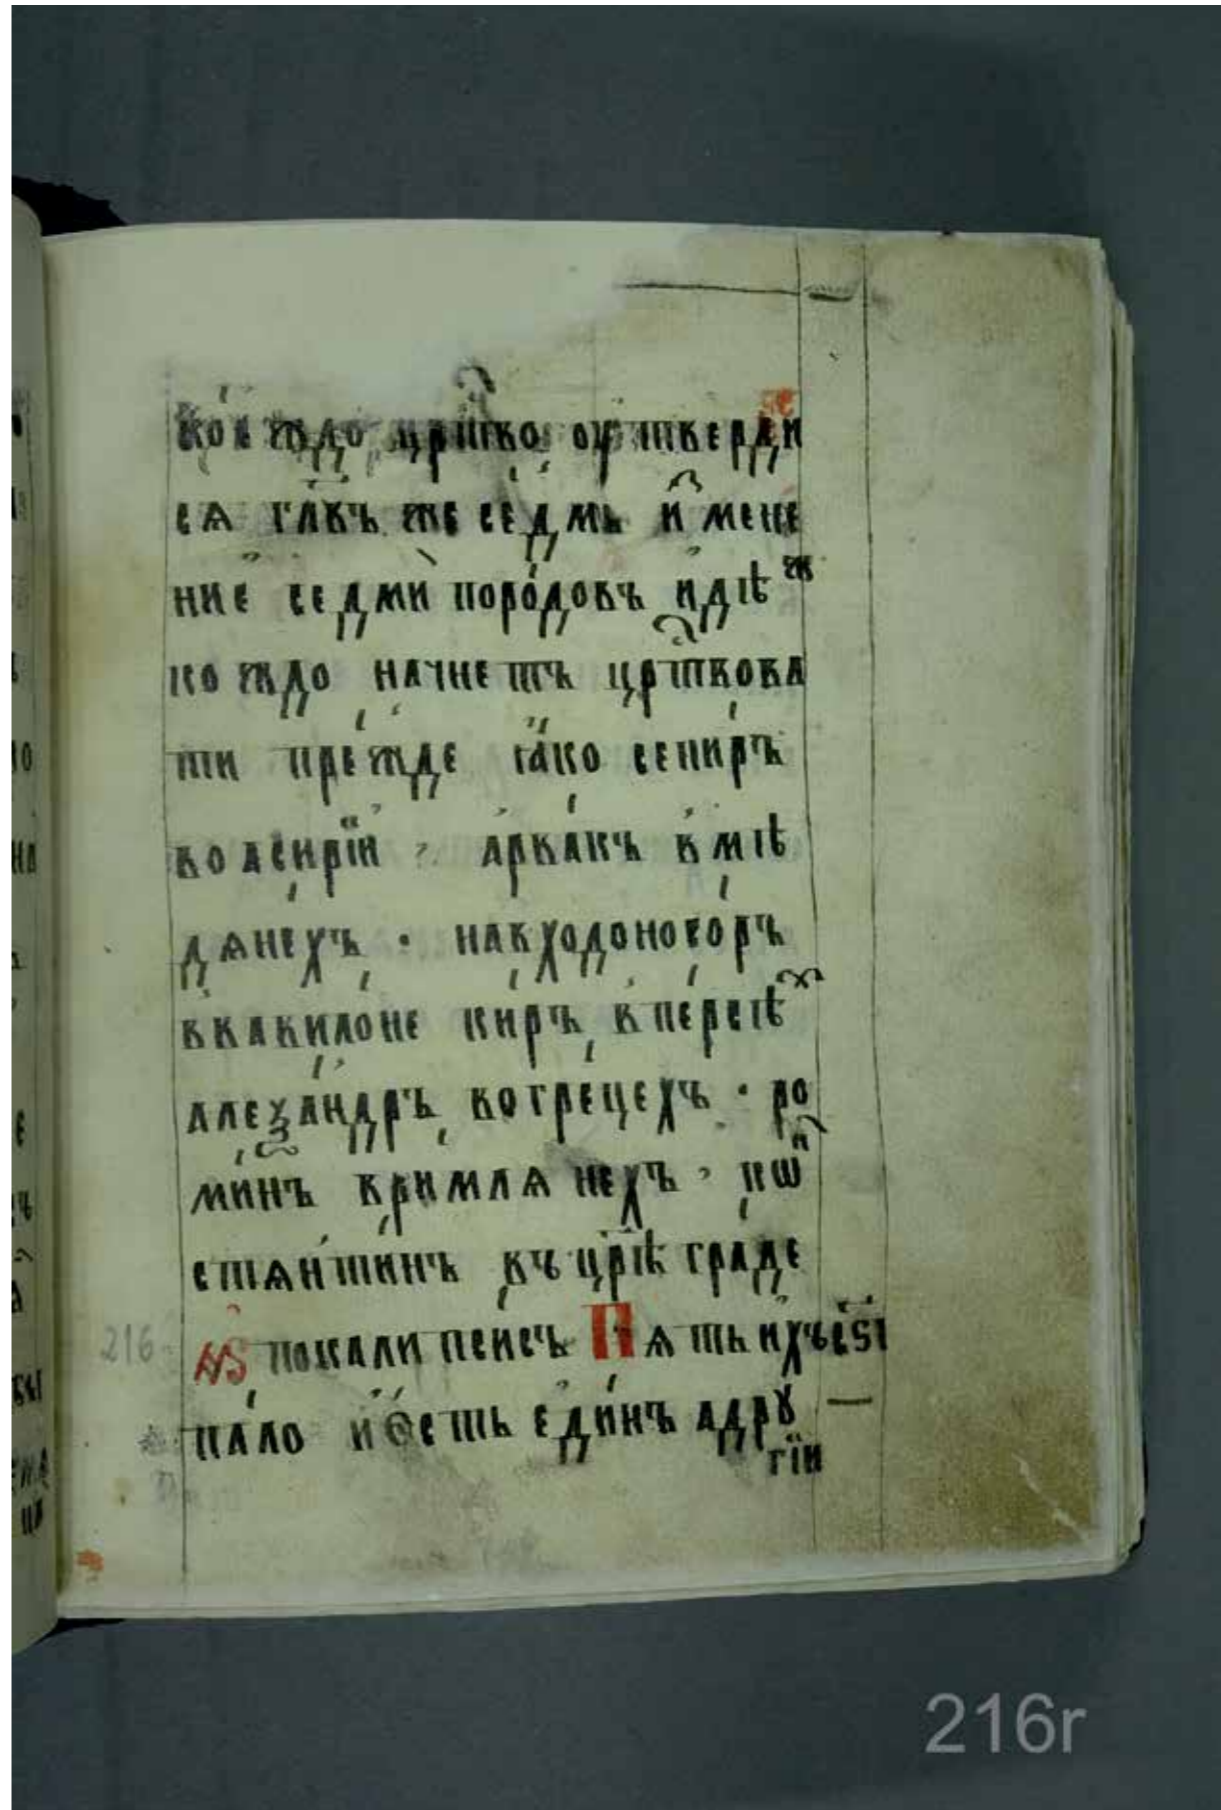 коеждо црⷭ҇тво оутверди
ся гл҃въ же седмь и҆мене
ние седми породовъ идѣⷤ
кождо начнетъ црⷭ҇твова
ти прежде ꙗко сениръ
во асирїи арвакъ в мѣ
дянехъ · навходоносоръ
в вавилоне киръ в персѣⷯ
алеѯандръ во грецехъ · ро
минъ в римлянехъ · коⷩ҇
стянтинъ въ црѣ граде
н҃ѕ по кали псисъ Пять ихъ
пало и есть единъ а дрꙋ
гїи
216
216r